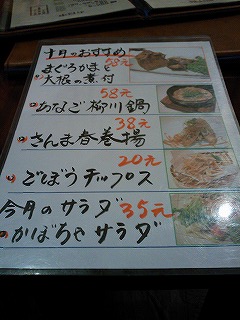 十月のおすすめ
まぐろかまと 58元
大根の煮付
58元
あなご柳川鍋
38元
さんま春巻揚
20元
ごぼうチップス
今月のサラダ 35元
かぼちゃサラダ